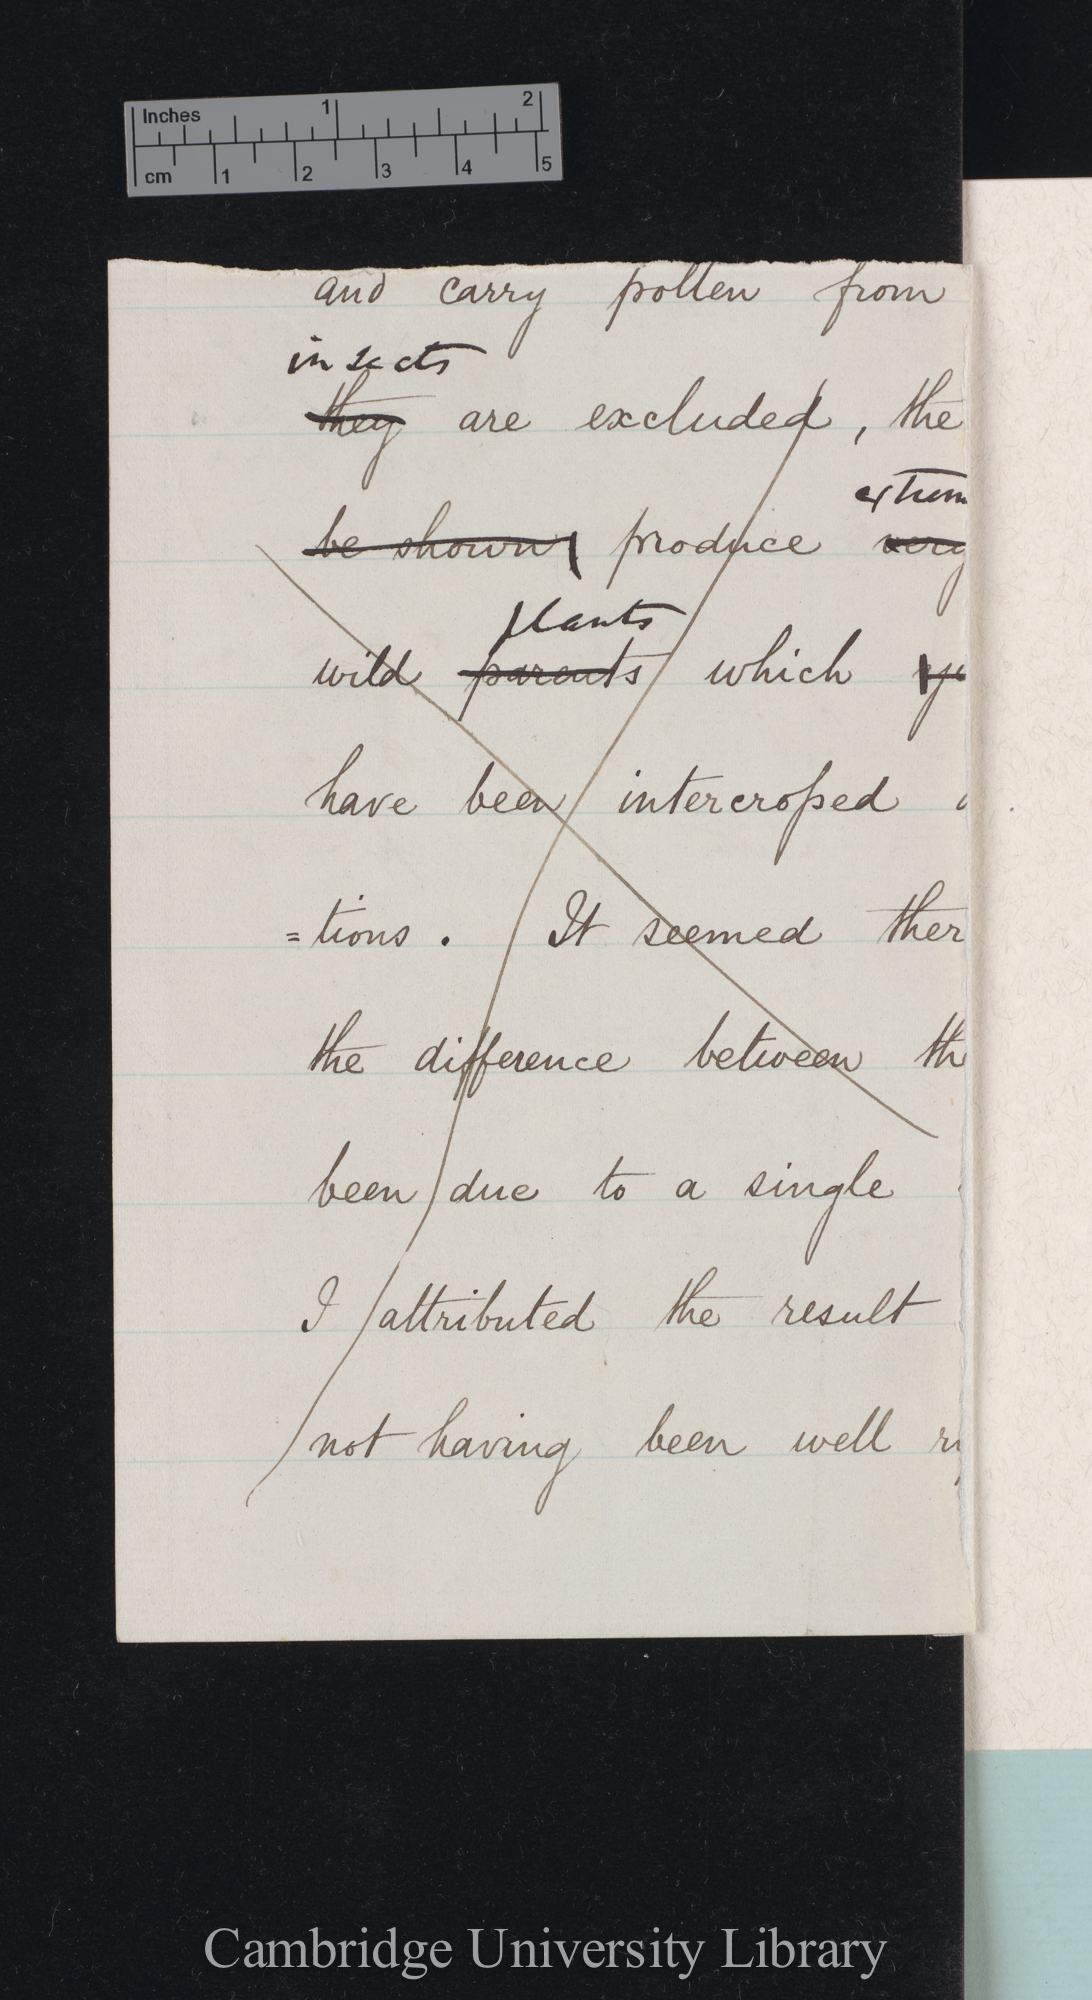 Inches 1 2
cm 1 2 3 4 5
and carry pollen from
insects
they are excluded, the
extrem
be shown produce very
plants
wild parents which
have been intercrossed
=tions. It seemed ther
the difference between th
been due to a single
I attributed the result
not having been well
Cambridge University Library